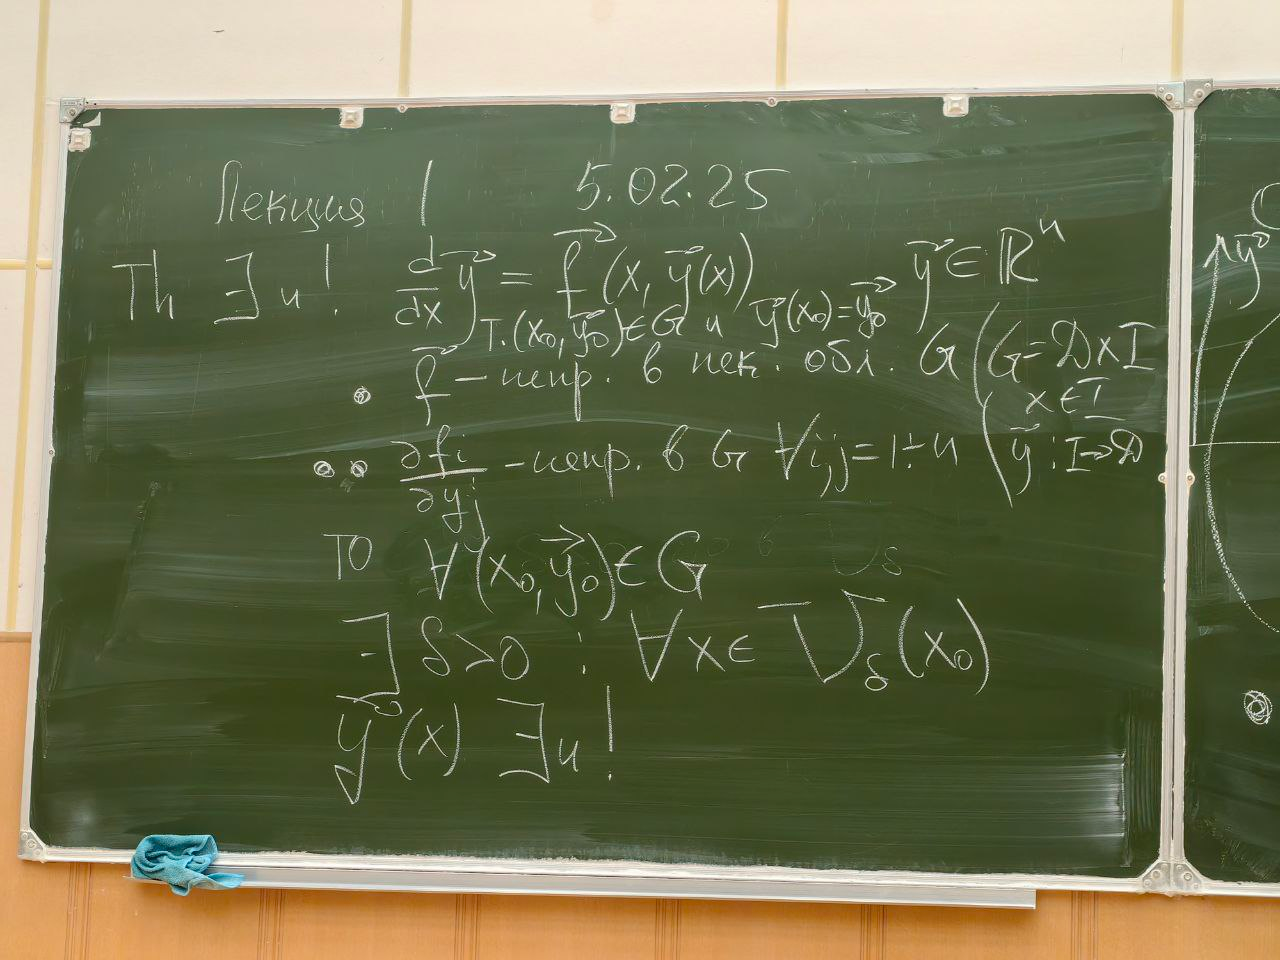 Лекция 1 5.02.25
Th ∃ и ! d/dx y⃗ = f⃗(x, y⃗(x)) y⃗ ∈ ℝⁿ
т.(x₀, y⃗₀) ∈ G и y⃗(x₀) = y⃗₀
f⃗ – непр. в нек. обл. G (G = D×I
x ∈ I
∂fᵢ/∂yⱼ – непр. в G ∀i,j = 1÷n (y⃗ : I→D
то ∀(x₀, y⃗₀) ∈ G
∃ δ>0 : ∀x ∈ U̅_δ(x₀)
y⃗(x) ∃ и !
y⃗